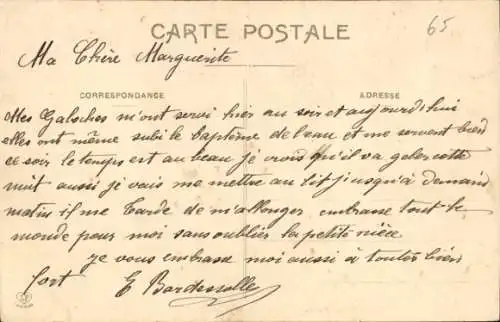 CARTE POSTALE
65
Ma Chère Marguerite
CORRESPONDANCE
ADRESSE
Mes Galoches m'ont servi hier au soir et aujourd'hui
elles ont même subi le baptême de l'eau et me servent bien
ce soir le temps est au beau je crois qu'il va geler cette
nuit aussi je vais me mettre au lit jusqu'à demain
matin il me tarde de m'allonger embrasse tout le
monde pour moi sans oublier la petite nièce
je vous embrasse moi aussi à toutes bien
fort E